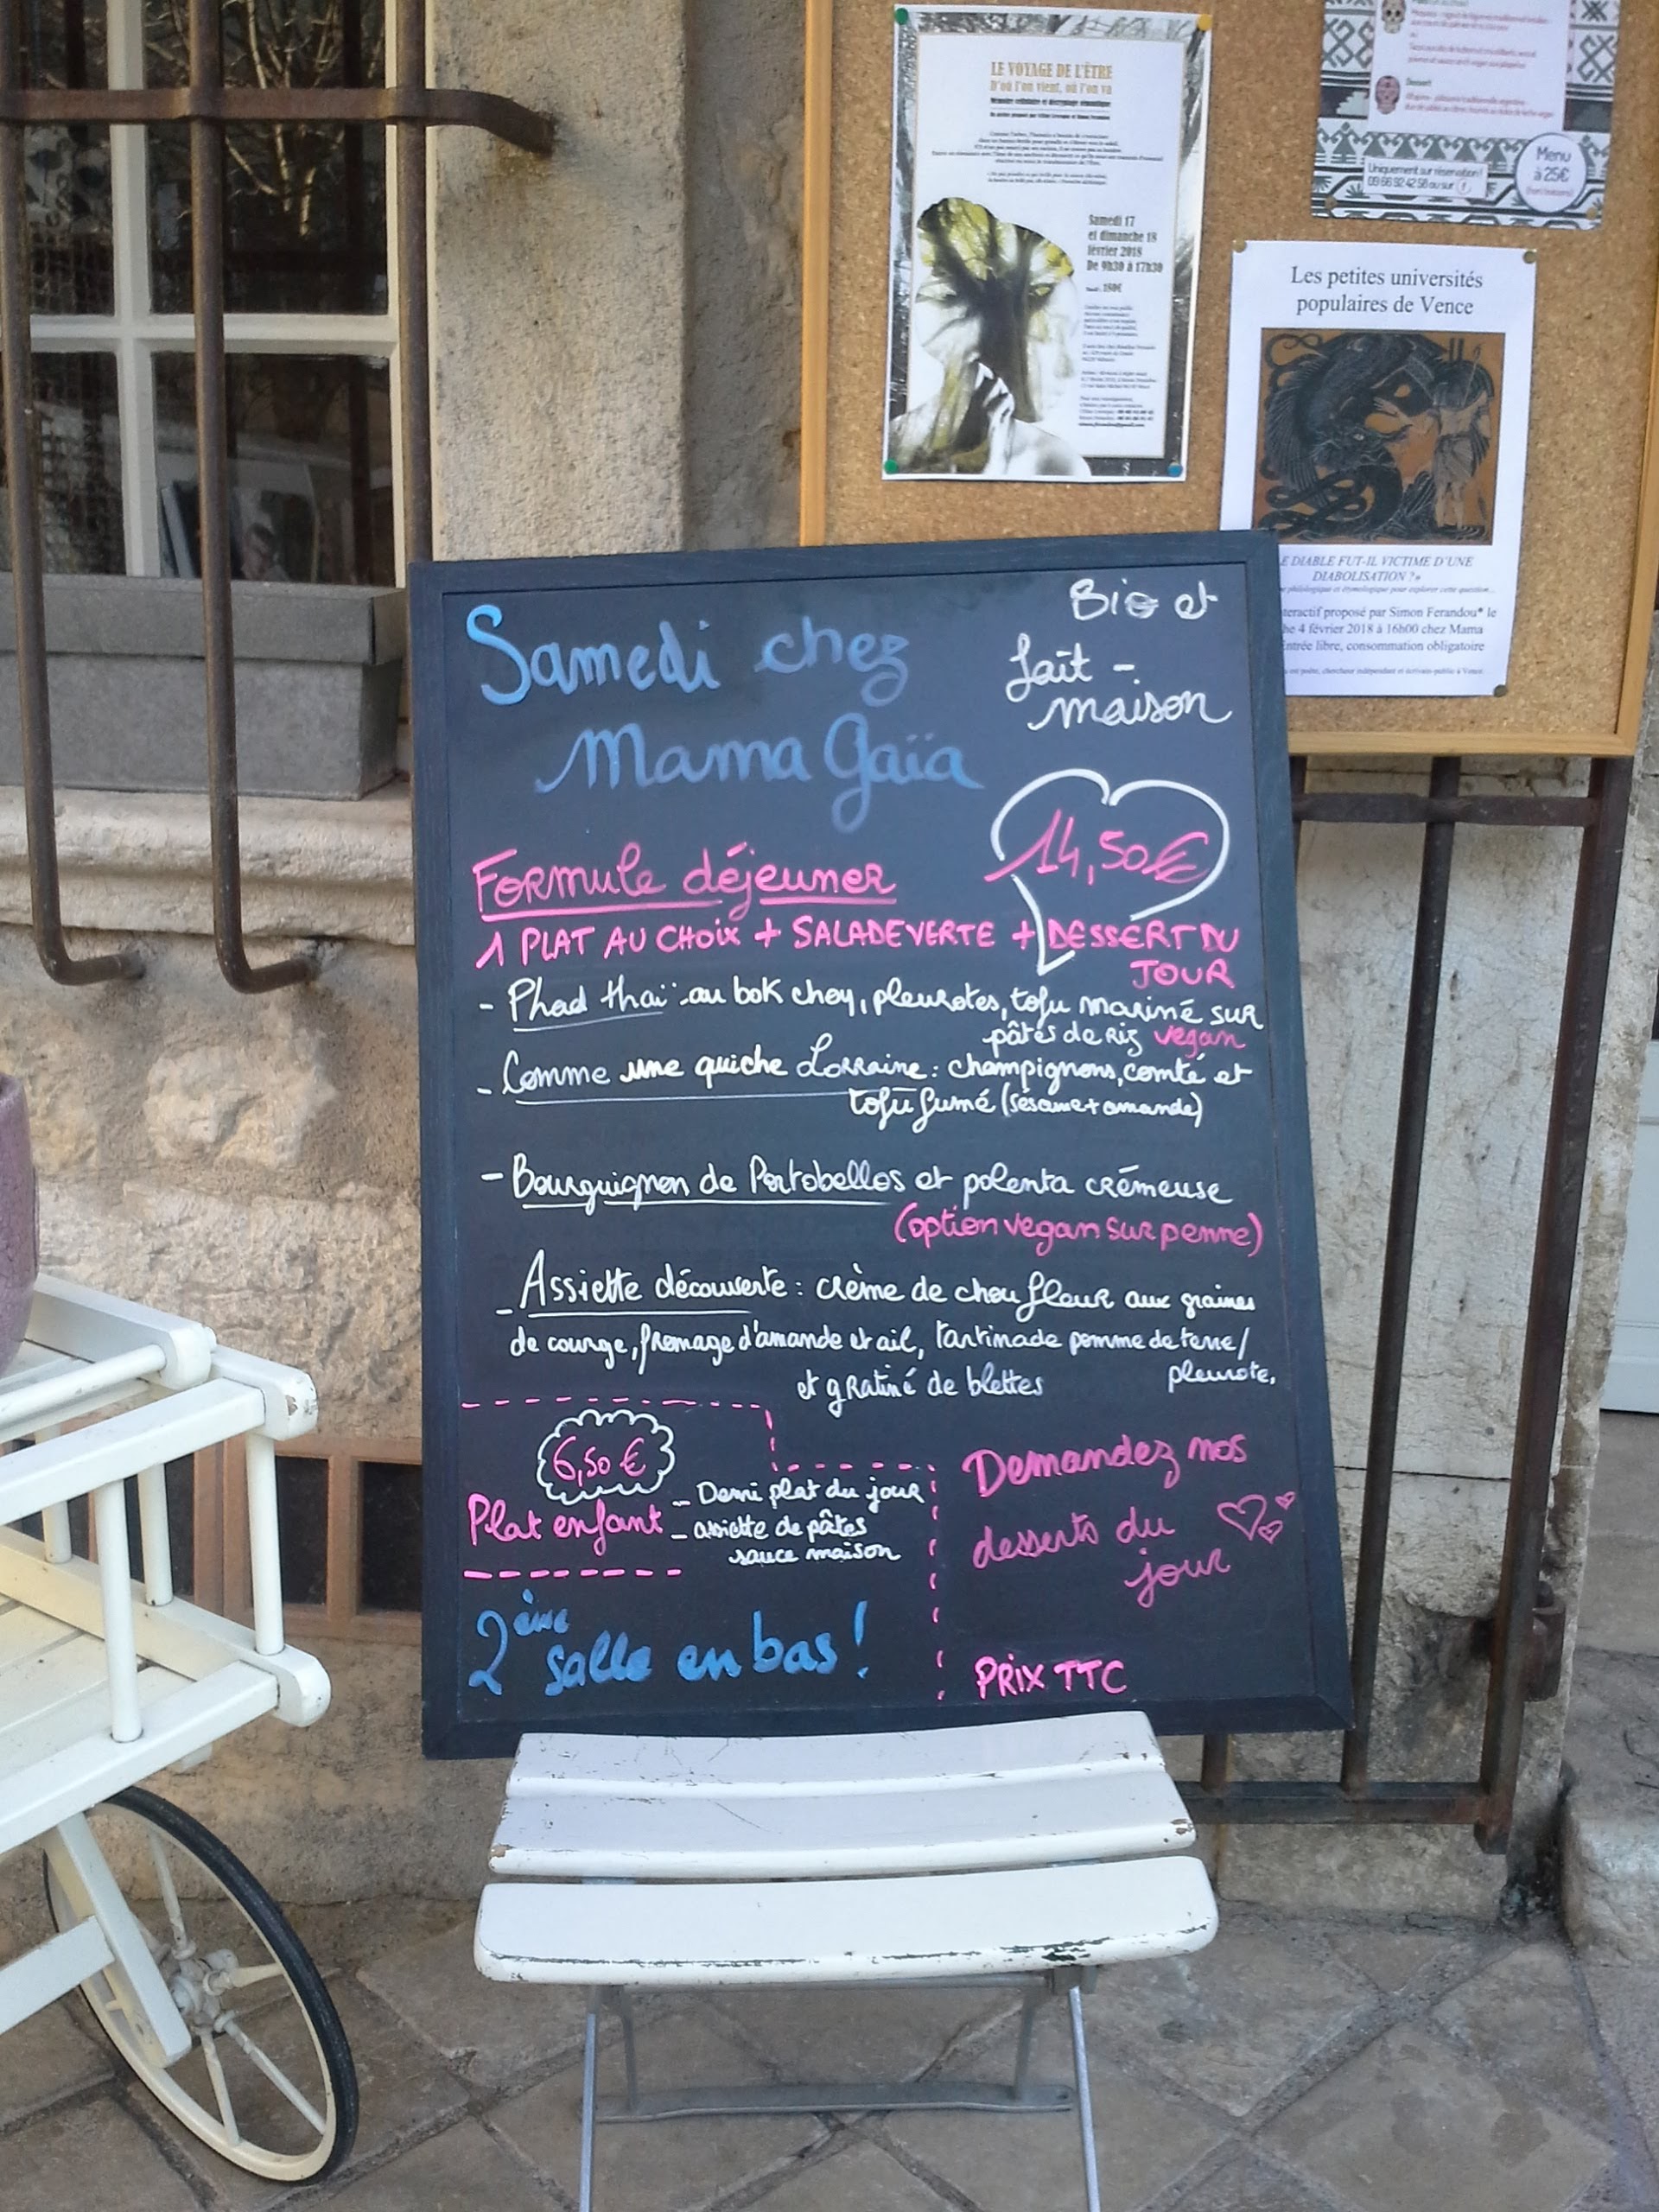 LE VOYAGE DE L'ÊTRE
D'où l'on vient, où l'on va
Mémoire cellulaire et décryptage sémantique
Samedi 17
et dimanche 18
février 2018
De 9h30 à 17h30
180€
Dessert
Uniquement sur réservation!
09 66 92 42 58 ou sur f
Menu
à 25€
(hors boissons)
Les petites universités
populaires de Vence
E DIABLE FUT-IL VICTIME D'UNE
DIABOLISATION ?»
philologique et étymologique pour explorer cette question...
teractif proposé par Simon Ferandou* le
he 4 février 2018 à 16h00 chez Mama
ntrée libre, consommation obligatoire
est poète, chercheur indépendant et écrivain public à Vence
Bio et
fait-
maison
Samedi chez
Mama Gaïa
14,50€
Formule déjeuner
1 PLAT AU CHOIX + SALADE VERTE + DESSERT DU
JOUR
- Phad thaï au bok choy, pleurotes, tofu mariné sur
pâtes de riz vegan
- Comme une quiche Lorraine : champignons, comté et
tofu fumé (sésame + amande)
- Bourguignon de Portobellos et polenta crémeuse
(option vegan sur penne)
- Assiette découverte : crème de chou fleur aux graines
de courge, fromage d'amande et ail, tartinade pomme de terre/
pleurote,
et gratiné de blettes
6,50 €
Plat enfant
- Demi plat du jour
- assiette de pâtes
sauce maison
Demandez nos
desserts du
jour
2ème salle en bas !
PRIX TTC